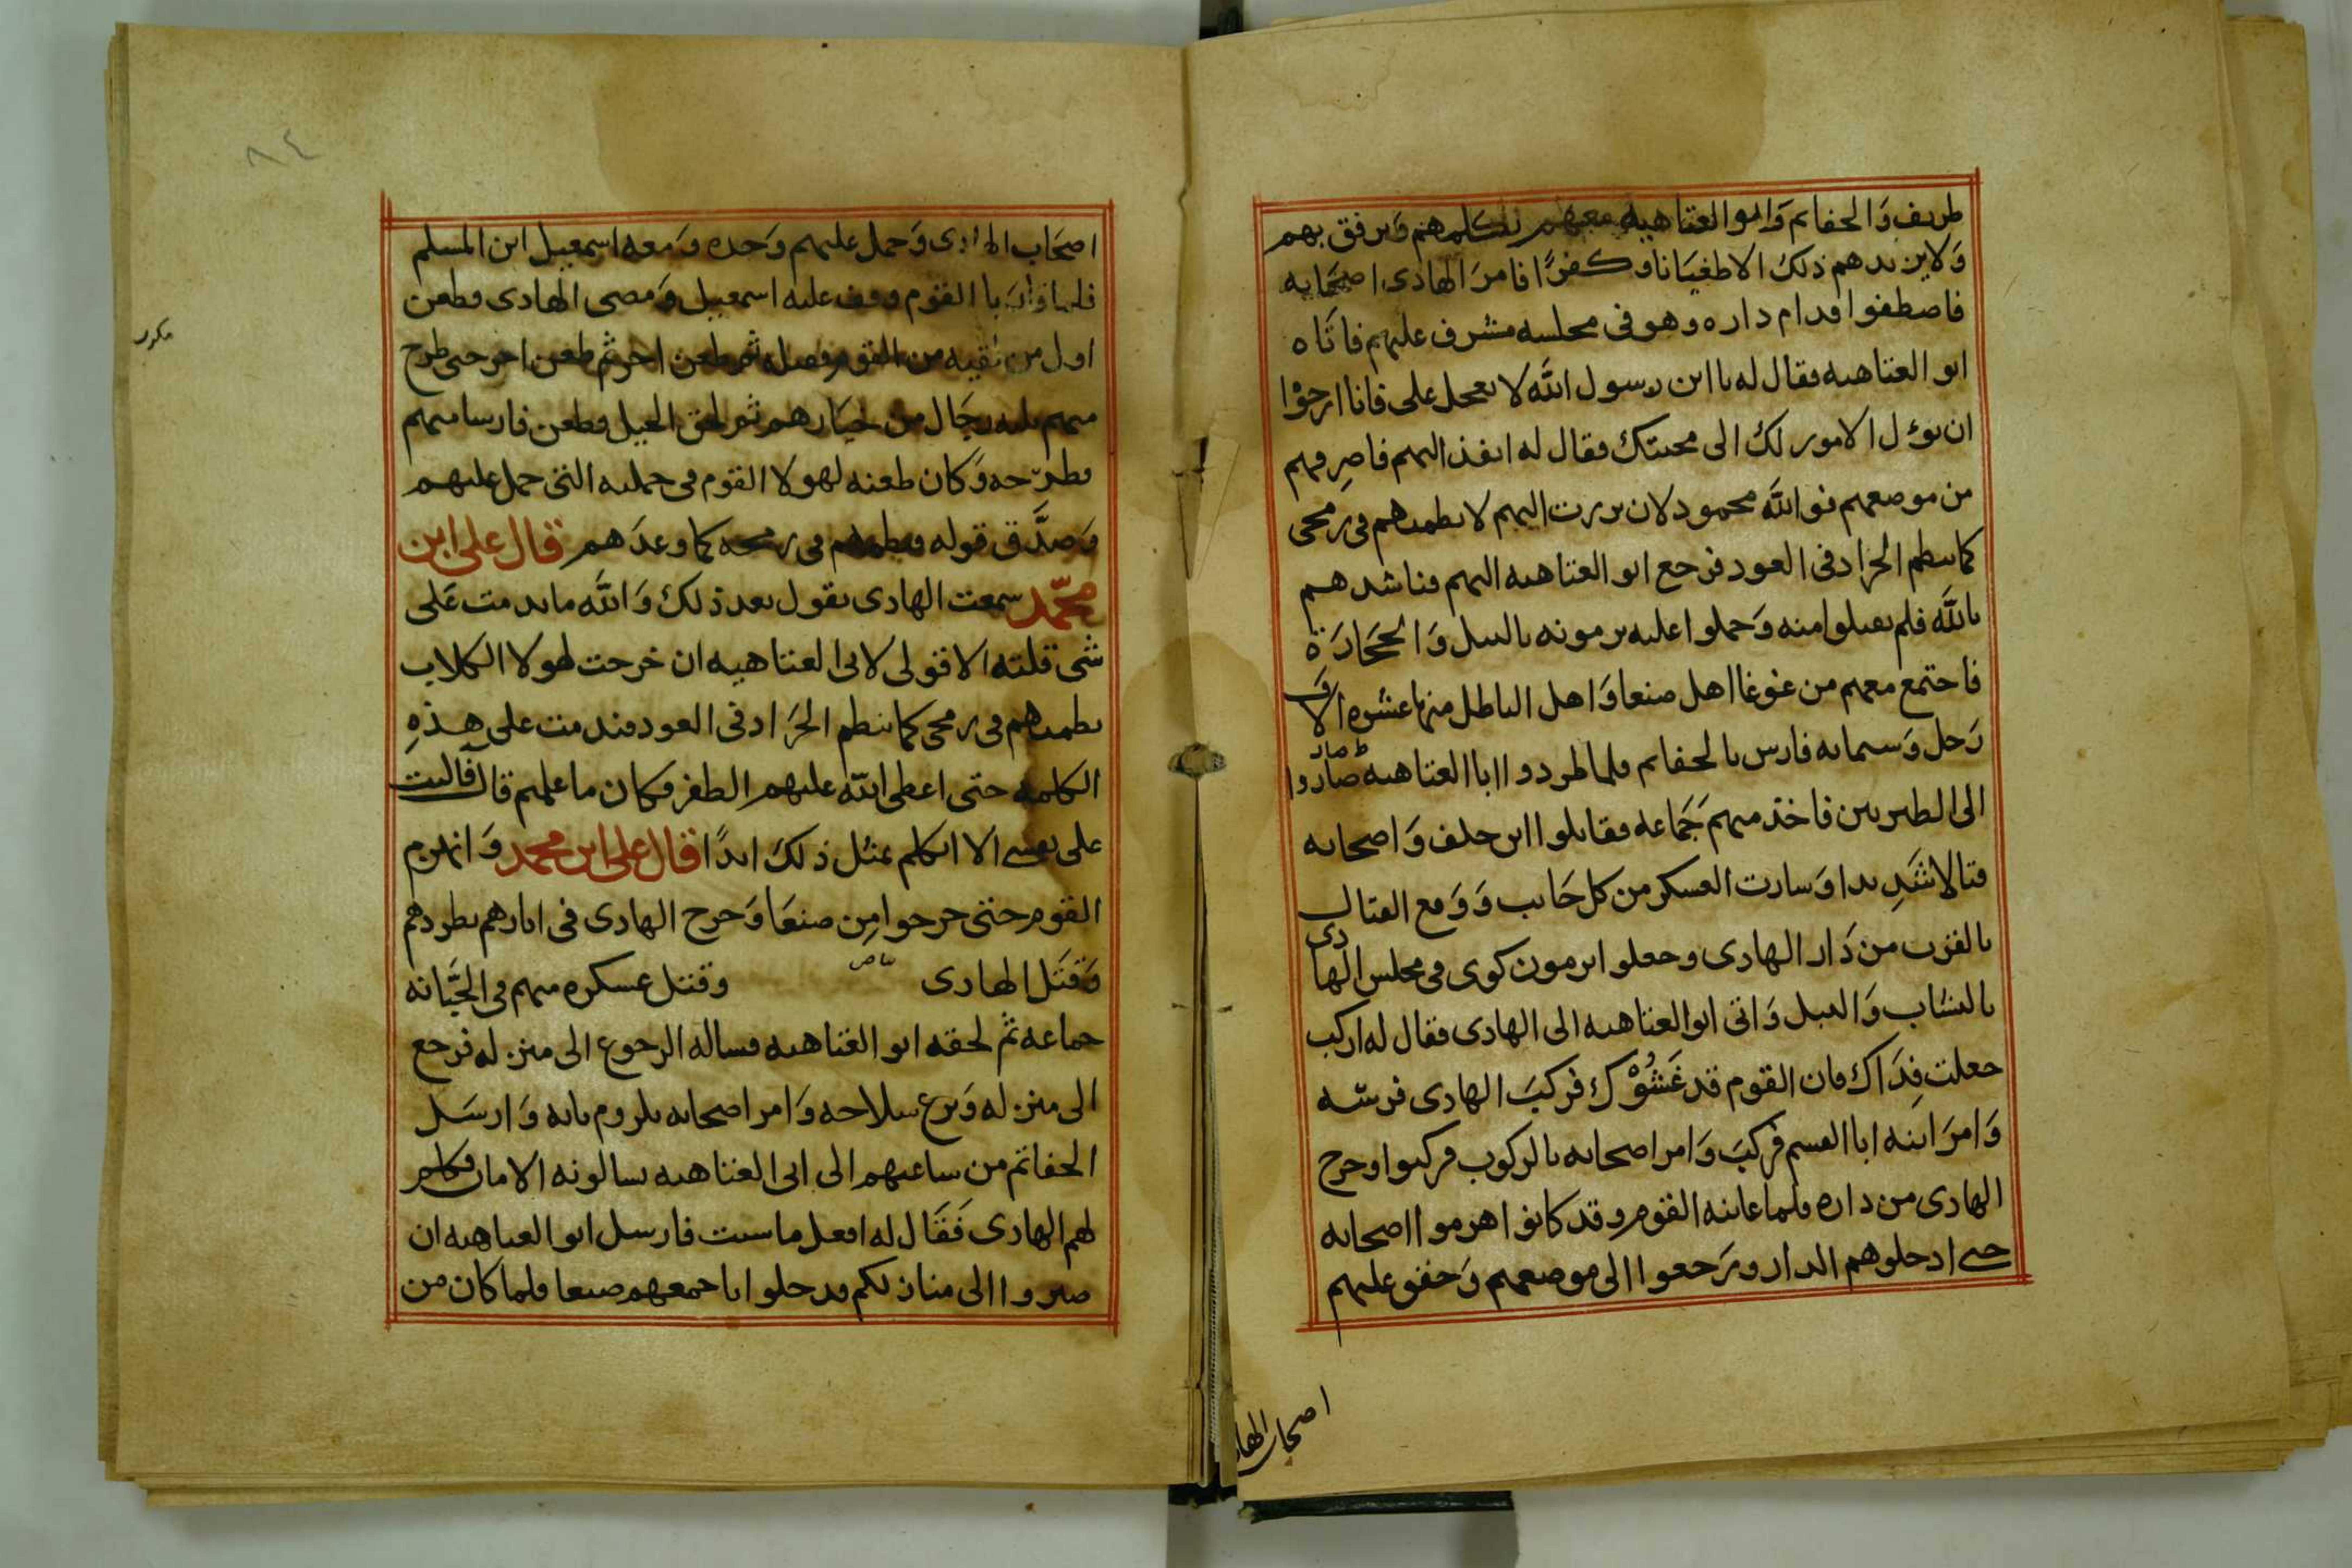 طريف والحفاتم وابو العتاهيه معهم يكلمهم ويرفق بهم
ولا يزيدهم ذلك الا طغيانا وكفرًا فامر الهادى اصحابه
فاصطفوا قدام داره وهو فى مجلسه مشرف عليهم فاتاه
ابو العتاهيه فقال له يا ابن رسول الله لا تعجل على فانا ارجوا
ان تؤل الامور لك الى محبتك فقال له انفذ اليهم فاصرفهم
من موضعهم فوالله محمود لان برزت اليهم لانظمنهم فى رمحى
كما ينظم الجراد فى العود فرجع ابو العتاهيه اليهم فناشدهم
بالله فلم يقبلوا منه وحملوا عليه يرمونه بالنبل والحجارة
فاجتمع معهم من غوغا اهل صنعا واهل الباطل منها عشره الاف
رجل وسمايه فارس بالحفاتم فلما طردوا ابا العتاهيه صاروا
الى الطبريين فاخذ منهم جماعه فقاتلوا ابن خلف واصحابه
قتالا شديدا وسارت العسكر من كل جانب ووقع القتال
بالقرب من دار الهادى وجعلوا يرمون كوى فى مجلس الهادى
بالنشاب والنبل واتى ابو العتاهيه الى الهادى فقال له اركب
جعلت فداك فان القوم قد غشوك فركب الهادى فرسه
وامر ابنه ابا القسم فركب وامر اصحابه بالركوب فركبوا وخرج
الهادى من داره فلما عاينه القوم وقد كانوا هزموا اصحابه
حتى ادخلوهم الدار ورجعوا الى موضعهم وحفو عليهم
اصحاب الها
٨٤
اصحاب الهادى وحمل عليهم وحده ومعه اسمعيل ابن المسلم
فلما القوم وقف عليه اسمعيل ومضى الهادى وطعن
اول من لقيه من القوم فقتله ثم طعن اخر ثم طعن اخر حتى طرح
منهم ثلثه رجال من خيارهم ثم لحق الخيل وطعن فارسا منهم
فطرحه وكان طعنه لهولا القوم فى حملته التى حمل عليهم
وصدق قوله ونظمهم فى رمحه كما وعدهم قال على ابن
محمد سمعت الهادى يقول بعد ذلك والله ما ندمت على
شى قلته الا قولى لابى العتاهيه ان خرجت لهولا الكلاب
نظمتهم فى رمحى كما ينظم الجراد فى العود فندمت على هذه
الكلمه حتى اعطى الله عليهم الظفر وكان ما علمتم قال فاليت
على نفسى الا اتكلم بمثل ذلك ابدًا قال على ابن محمد وانهزم
القوم حتى خرجوا من صنعا وخرج الهادى فى اثارهم يطردهم
وقتل الهادى بياض وقتل عسكره منهم فى الجبانه
جماعه ثم لحقه ابو العتاهيه فساله الرجوع الى منزله فرجع
الى منزله ونزع سلاحه وامر اصحابه بلزوم بابه وارسل
الحفاتم من ساعتهم الى ابى العتاهيه يسالونه الامان فكلم
لهم الهادى فقال له افعل ما شيت فارسل ابو العتاهيه ان
صيروا الى منازلكم فدخلوا باجمعهم صنعا فلما كان من